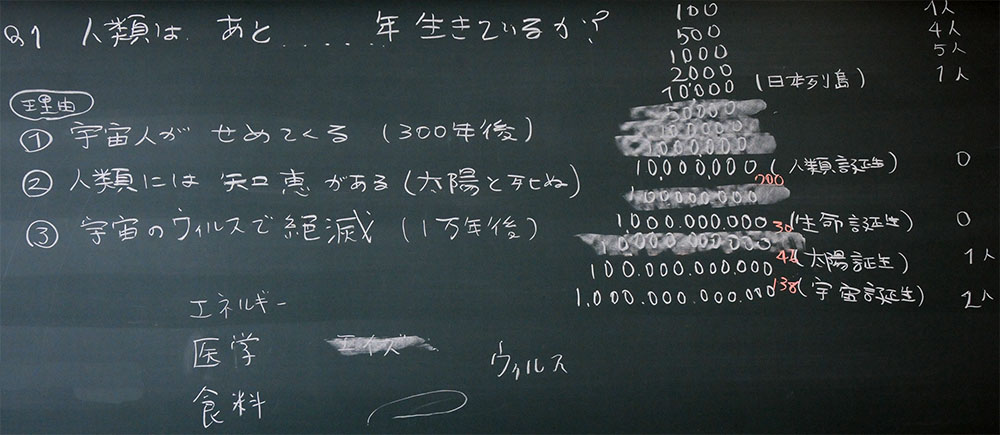 Q1 人類は、あと......年生きているか?
理由
① 宇宙人が せめてくる (300年後)
② 人類には 知恵がある(太陽と死ぬ)
③ 宇宙のウィルスで絶滅 (1万年後)
エネルギー
医学 エイズ
ウィルス
食料
100 1人
500 4人
1000 5人
2000 1人
10,000 (日本列島)
10,000,000 (人類誕生) 0
200
1,000.000.000 (生命誕生) 0
(太陽誕生) 1人
100.000.000.000
1,000.000.000.000 138 (宇宙誕生) 2人